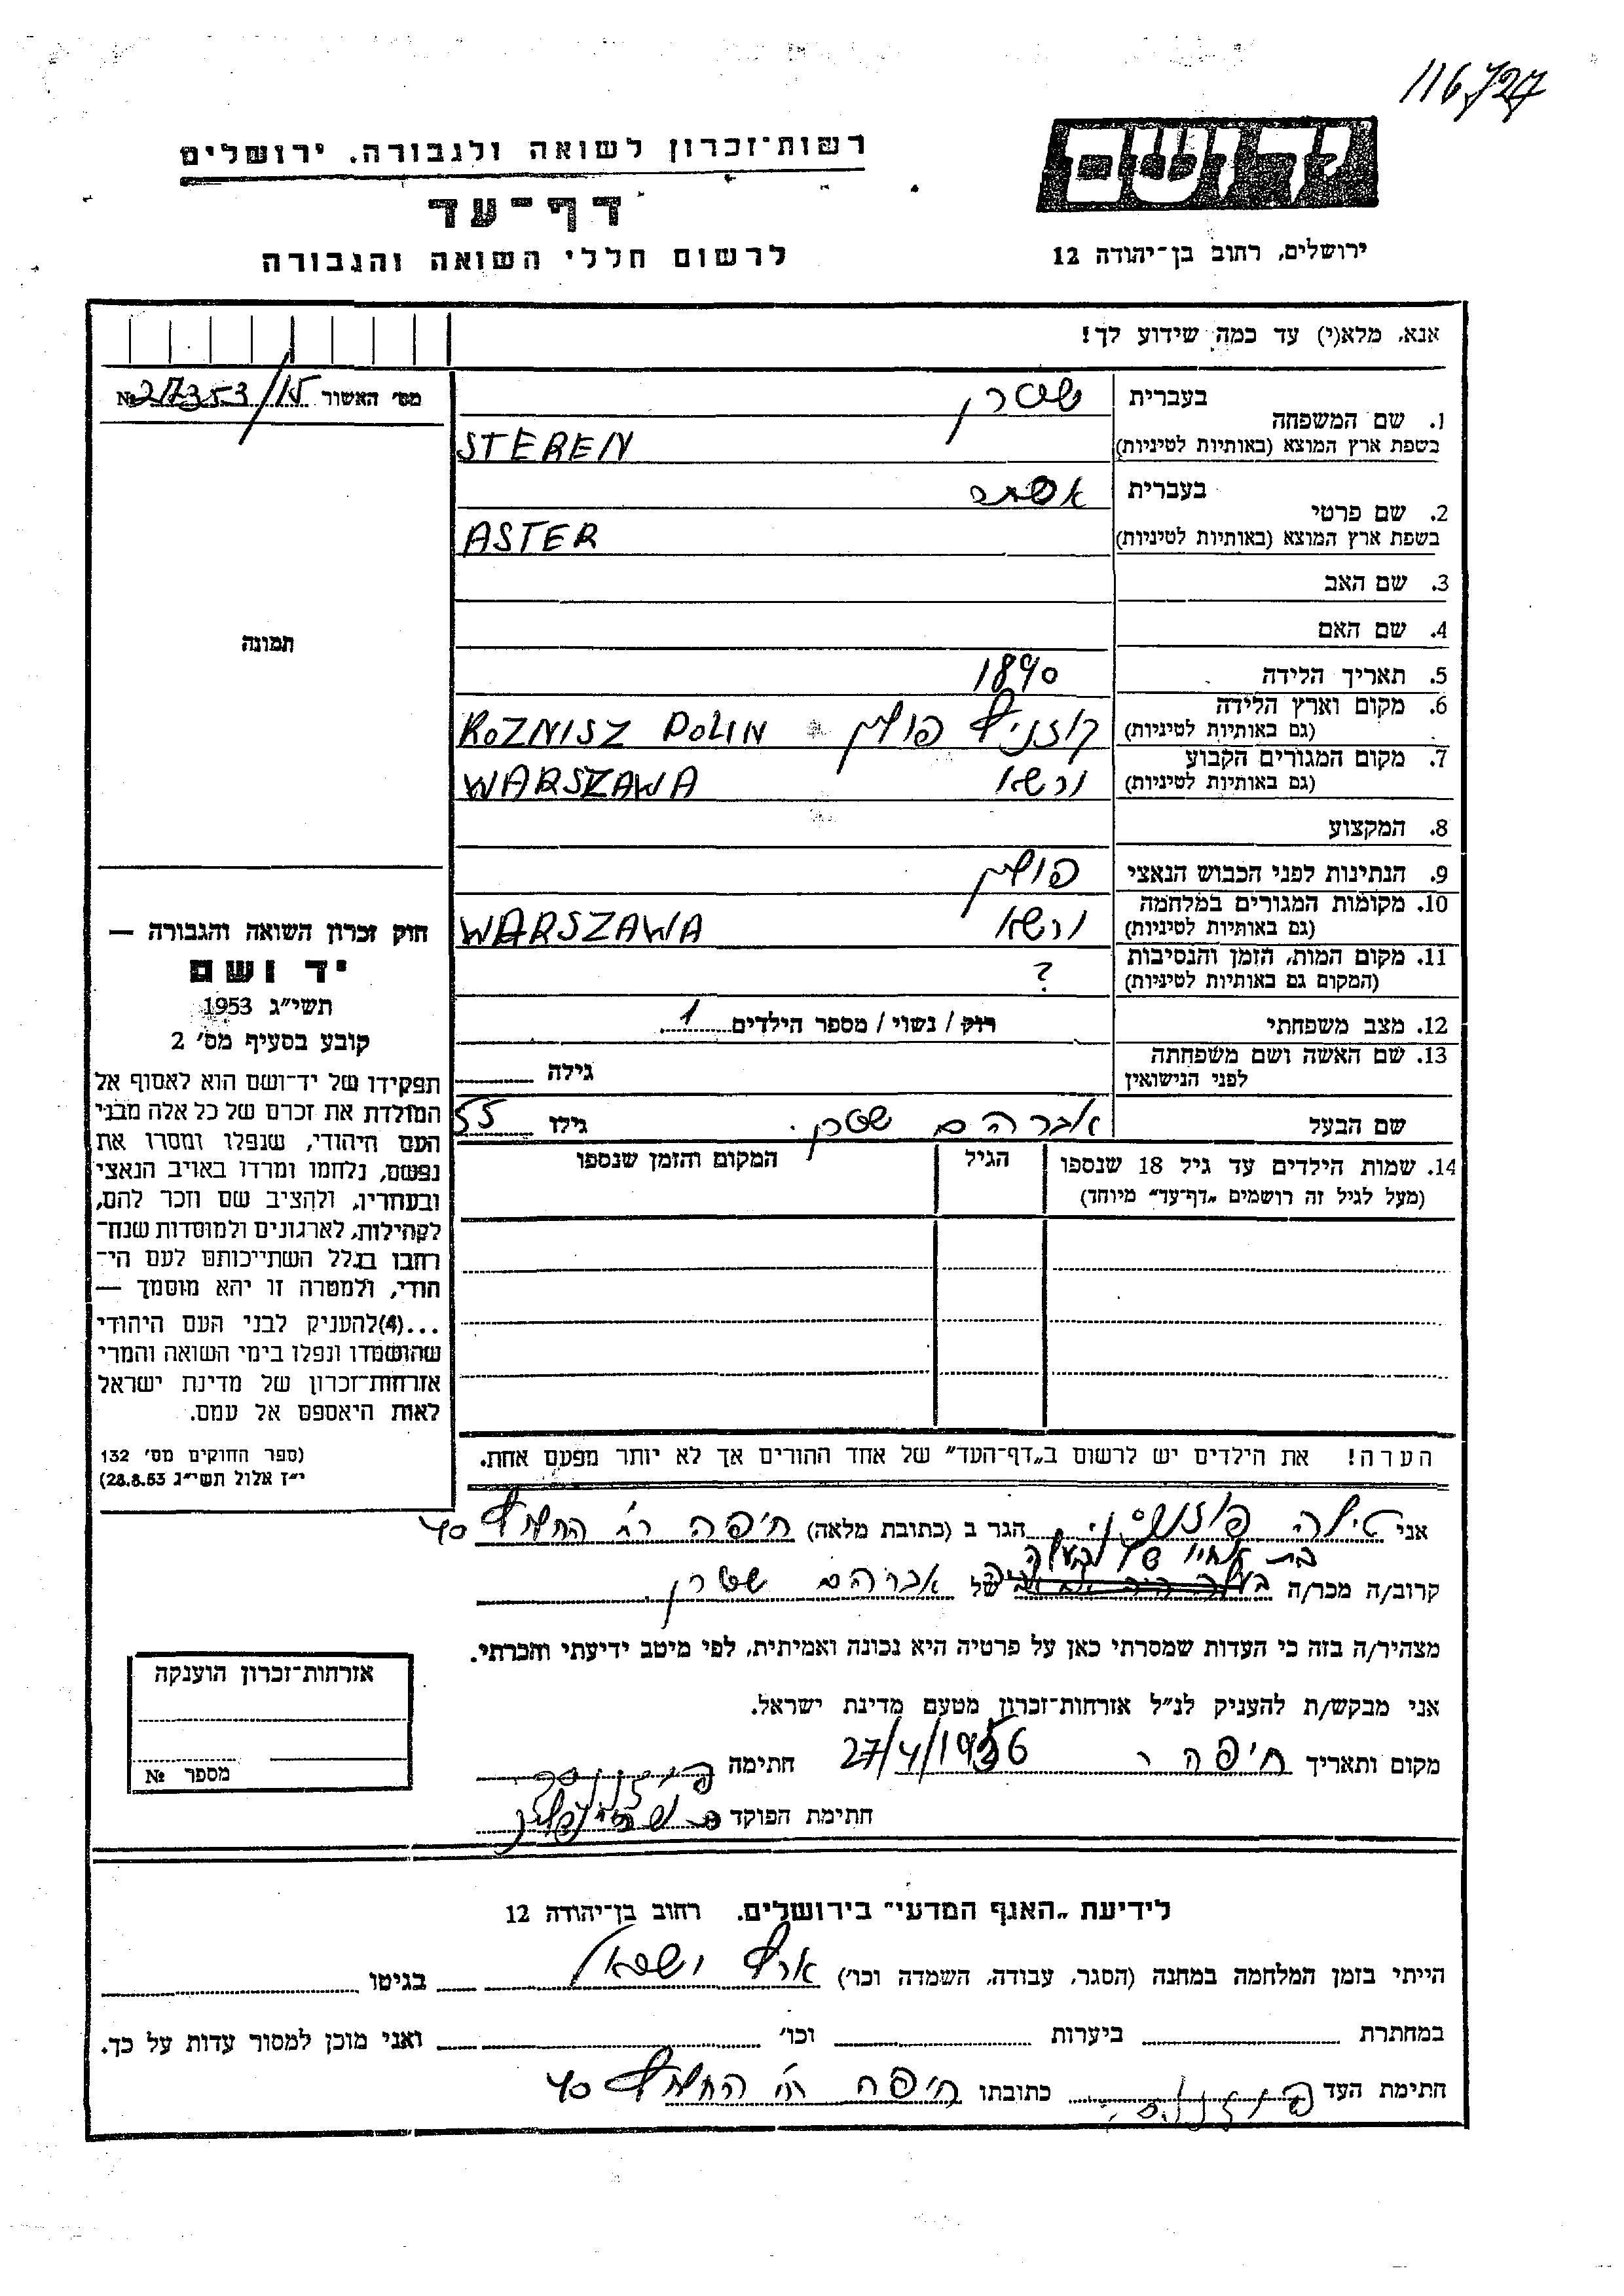 116727
יד ושם
רשות־זכרון לשואה ולגבורה. ירושלים
דף־עד
לרשום חללי השואה והגבורה
ירושלים, רחוב בן־יהודה 12
אנא, מלא(י) עד כמה שידוע לך!
מס׳ האשור № 27353/15
1. שם המשפחה
בעברית שטרן
בשפת ארץ המוצא (באותיות לטיניות) STEREN
2. שם פרטי
בעברית אסתר
בשפת ארץ המוצא (באותיות לטיניות) ASTER
3. שם האב
4. שם האם
תמונה
5. תאריך הלידה 1890
6. מקום וארץ הלידה
(גם באותיות לטיניות) קוזניץ פולין KOZNISZ POLIN
7. מקום המגורים הקבוע
(גם באותיות לטיניות) ורשא WARSZAWA
8. המקצוע
9. הנתינות לפני הכבוש הנאצי פולין
10. מקומות המגורים במלחמה
(גם באותיות לטיניות) ורשא WARSZAWA
11. מקום המות, הזמן והנסיבות
(המקום גם באותיות לטיניות) ?
12. מצב משפחתי רוק / נשוי / מספר הילדים 1
13. שם האשה ושם משפחתה
לפני הנישואין גילה
שם הבעל אברהם שטרן. גילו 55
14. שמות הילדים עד גיל 18 שנספו
(מעל לגיל זה רושמים „דף־עד” מיוחד)
הגיל
המקום והזמן שנספו
חוק זכרון השואה והגבורה —
יד ושם
תשי״ג 1953
קובע בסעיף מס׳ 2
תפקידו של יד־ושם הוא לאסוף אל
המולדת את זכרם של כל אלה מבני
העם היהודי, שנפלו ומסרו את
נפשם, נלחמו ומרדו באויב הנאצי
ובעחריו, ולהציב שם וזכר להם,
לקהילות, לארגונים ולמוסדות שנח־
רחבו בגלל השתייכותם לעם הי־
הודי, ולמטרה זו יהא מוסמך —
...(4)להעניק לבני העם היהודי
שהושמדו ונפלו בימי השואה והמרי
אזרחות־זכרון של מדינת ישראל
לאות היאספם אל עמם.
(ספר החוקים מס׳ 132
י״ז אלול תשי״ג 28.8.53)
הערה! את הילדים יש לרשום ב„דף־העד” של אחד ההורים אך לא יותר מפעם אחת.
אני טילה הגר ב (כתובת מלאה) חיפה רח׳ החלוץ 40
בת אחיו של בעלה
קרוב/ה מכר/ה של אברהם שטרן
מצהיר/ה בזה כי העדות שמסרתי כאן על פרטיה היא נכונה ואמיתית, לפי מיטב ידיעתי והכרתי.
אני מבקש/ת להעניק לנ״ל אזרחות־זכרון מטעם מדינת ישראל.
מקום ותאריך חיפה 27/4/1956 חתימה
חתימת הפוקד
אזרחות־זכרון הוענקה
מספר №
לידיעת „האגף המדעי” בירושלים. רחוב בן־יהודה 12
הייתי בזמן המלחמה במחנה (הסגר, עבודה, השמדה וכו׳) ארץ ישראל בגיטו
במחתרת ביערות וכו׳ ואני מוכן למסור עדות על כך.
חתימת העד כתובתו חיפה רח׳ החלוץ 40